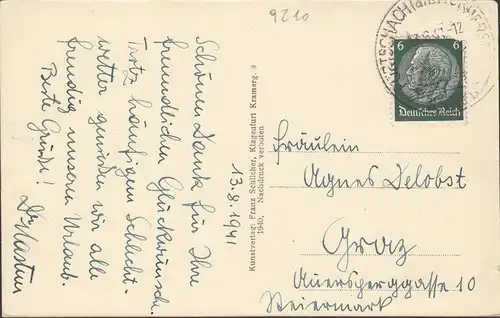 9210
Schönen Dank für Ihre
freundlichen Glückwünsche.
Trotz häufigem Schlecht-
wetter genießen wir alle
freudig unseren Urlaub.
Beste Grüße!
13.8.1941
Kunstverlag: Franz Schilcher, Klagenfurt Kramerg. 9
1940. Nachdruck verboten
6 6
Deutsches Reich
Fräulein
Agnes Delobst
Graz
Auersperggasse 10
Steiermark